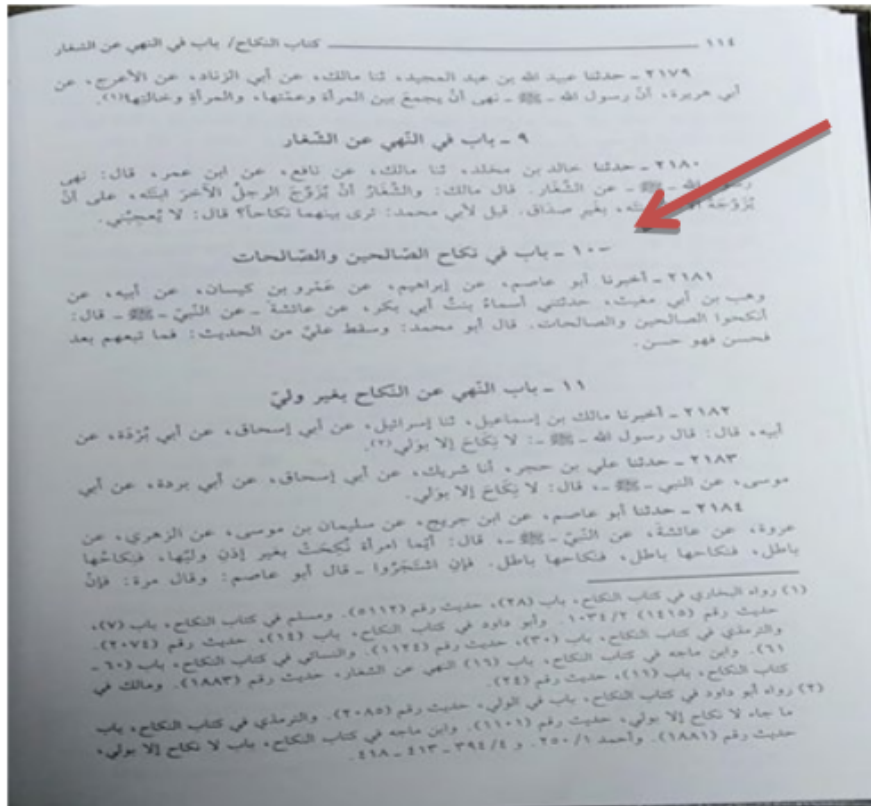 ١١٤ كتاب النكاح/ باب في النهي عن الشغار
٢١٧٩ ـ حدثنا عبيد الله بن عبد المجيد، ثنا مالك، عن أبي الزناد، عن الأعرج، عن
أبي هريرة، أنّ رسول الله ـ ﷺ ـ نهى أنْ يجمعَ بين المرأة وعمّتها، والمرأةِ وخالتِها(١).
٩ ـ باب في النّهي عن الشّغار
٢١٨٠ ـ حدثنا خالد بن مخلد، ثنا مالك، عن نافع، عن ابن عمر، قال: نهى
رسول الله ـ ﷺ ـ عن الشّغار. قال مالك: والشّغارُ أنْ يُزَوّجَ الرجلُ الآخرَ ابنتَه، على أنْ
يُزَوّجَهُ ابنته، بغير صداق. قيل لأبي محمد: ترى بينهما نكاحاً؟ قال: لا يُعجبُني.
ـ ١٠ ـ باب في نكاح الصّالحين والصّالحات
٢١٨١ ـ أخبرنا أبو عاصم، عن إبراهيم، عن عَمْرو بن كيسان، عن أبيه، عن
وهب بن أبي مغيث، حدثتني أسماءُ بنتُ أبي بكر، عن عائشة ـ عن النّبيّ ـ ﷺ ـ قال:
أنكحوا الصالحين والصالحات. قال أبو محمد: وسقط عليّ من الحديث: فما تبعهم بعد
فحسن فهو حسن.
١١ ـ باب النّهي عن النّكاح بغير وليّ
٢١٨٢ ـ أخبرنا مالك بن إسماعيل، ثنا إسرائيل، عن أبي إسحاق، عن أبي بُرْدَة، عن
أبيه، قال: قال رسول الله ـ ﷺ ـ: لا نِكَاحَ إلا بوَلي(٢).
٢١٨٣ ـ حدثنا علي بن حجر، أنا شريك، عن أبي إسحاق، عن أبي بردة، عن أبي
موسى، عن النبي ـ ﷺ ـ، قال: لا نِكَاحَ إلا بوَلي.
٢١٨٤ ـ حدثنا أبو عاصم، عن ابن جريج، عن سليمان بن موسى، عن الزهري، عن
عروة، عن عائشةَ، عن النّبيّ ـ ﷺ ـ، قال: أيّما امرأة نُكِحَتْ بغير إذنِ وليّها، فنِكاحُها
باطل، فنكاحها باطل، فنكاحها باطل. فإنِ اشْتَجَرُوا ـ قال أبو عاصم: وقال مرة: فإنْ
(١) رواه البخاري في كتاب النكاح، باب (٢٨)، حديث رقم (٥١١٢). ومسلم في كتاب النكاح، باب (٧)،
حديث رقم (١٤١٥) ١٠٣٤/٢. وأبو داود في كتاب النكاح، باب (١٤)، حديث رقم (٢٠٧٤).
والترمذي في كتاب النكاح، باب (٣٠)، حديث رقم (١١٢٤). والنسائي في كتاب النكاح، باب (٦٠ ـ
٦١). وابن ماجه في كتاب النكاح، باب (١٦) النهي عن الشغار، حديث رقم (١٨٨٣). ومالك في
كتاب النكاح، باب (١١)، حديث رقم (٢٤).
(٢) رواه أبو داود في كتاب النكاح، باب في الولي، حديث رقم (٢٠٨٥). والترمذي في كتاب النكاح، باب
ما جاء لا نكاح إلا بولي، حديث رقم (١١٠١). وابن ماجه في كتاب النكاح، باب لا نكاح إلا بولي،
حديث رقم (١٨٨١). وأحمد ٢٥٠/١. و ٣٩٤/٤ ـ ٤١٣ ـ ٤١٨.